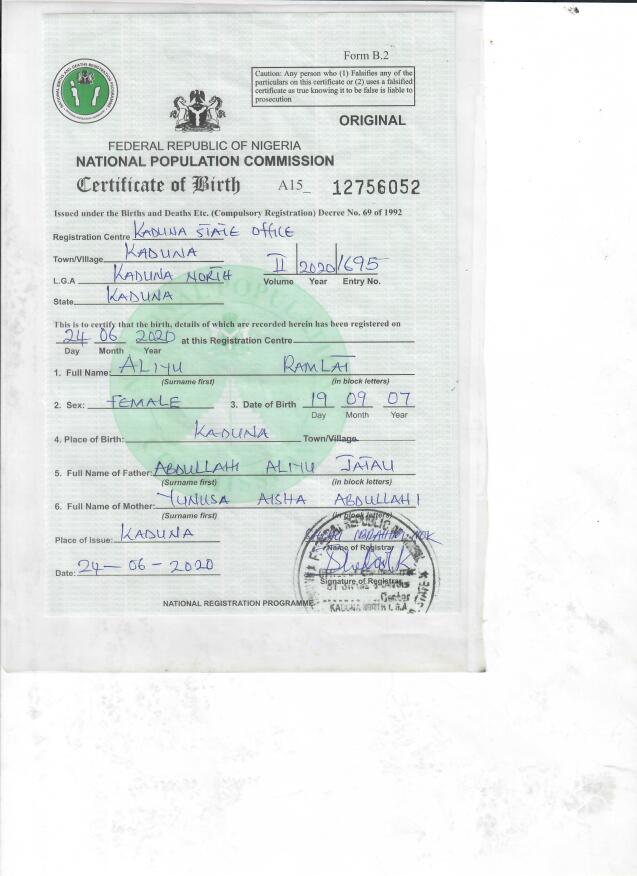 Form B.2
Caution: Any person who (1) Falsifies any of the
particulars on this certificate or (2) uses a falsified
certificate as true knowing it to be false is liable to
prosecution
ORIGINAL
FEDERAL REPUBLIC OF NIGERIA
NATIONAL POPULATION COMMISSION
Certificate of Birth A15_ 12756052
Issued under the Births and Deaths Etc. (Compulsory Registration) Decree No. 69 of 1992
Registration Centre KADUNA STATE OFFICE
Town/Village KADUNA
L.G.A KADUNA NORTH II 2020 1695
Volume Year Entry No.
State KADUNA
This is to certify that the birth, details of which are recorded herein has been registered on
24 06 2020 at this Registration Centre
Day Month Year
1. Full Name: ALIYU RAMLAT
(Surname first) (in block letters)
2. Sex: FEMALE 3. Date of Birth 19 09 07
Day Month Year
4. Place of Birth: KADUNA Town/Village
5. Full Name of Father: ABDULLAHI ALIYU JATAU
(Surname first) (in block letters)
6. Full Name of Mother: YUNUSA AISHA ABDULLAHI
(Surname first) (in block letters)
Place of Issue: KADUNA IBRAHIM NOK
Name of Registrar
Date: 24-06-2020
Signature of Registrar
Center
KADUNA NORTH L.G.A
NATIONAL REGISTRATION PROGRAMME